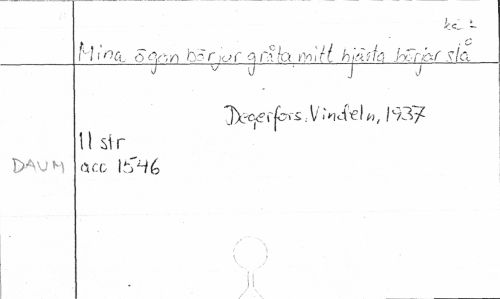 kä 2
Mina ögon börjar gråta, mitt hjärta börjar slå
Degerfors, Vindeln, 1937
11 str
DAUM acc 1546